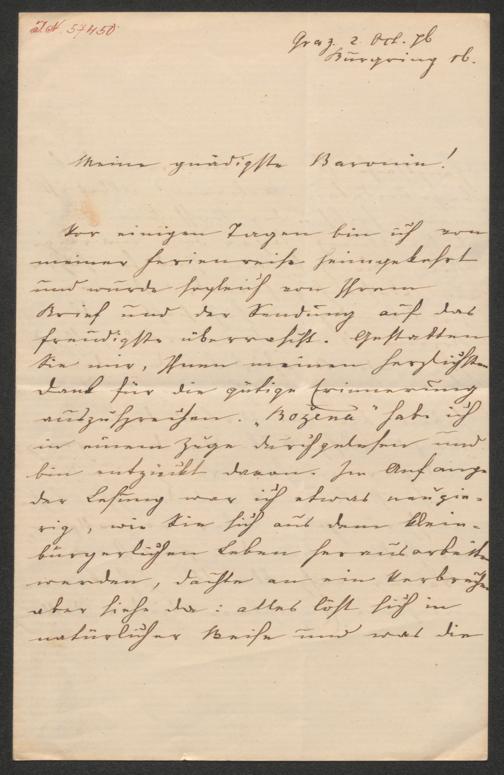 I. N. 57450
Graz. 2. Oct. 76
Burgring 16.
Meine gnädigste Baronin!
Vor einigen Tagen bin ich von
meiner Ferienreise heimgekehrt
und wurde sogleich von Ihrem
Brief und der Sendung auf das
freudigste überrascht. Gestatten
Sie mir, Ihnen meinen herzlichsten
Dank für die gütige Erinnerung
auszusprechen. „Božena" habe ich
in einem Zuge durchgelesen und
bin entzückt davon. Im Anfange
der Lesung war ich etwas neugie-
rig, wie Sie sich aus dem klein-
bürgerlichen Leben herausarbeiten
werden, dachte an ein Verbrechen
aber siehe da: alles löst sich in
natürlicher Weise und was die